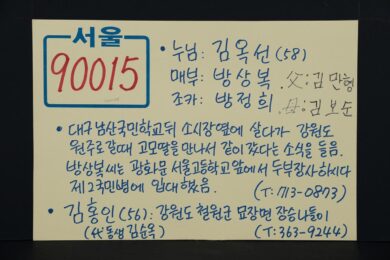 서울
90015
• 누님: 김옥선 (58)
매부: 방상복 父: 김만형
조카: 방정희 母: 김보순
• 대구 남산국민학교뒤 소시장옆에 살다가 강원도
원주로갈때 고모딸을 만나서 같이 갔다는 소식을 들음.
방상복씨는 광화문 서울고등학교 앞에서 두부장사하다
제2국민병에 입대했음. (T: 713-0873)
• 김홍인 (56): 강원도 철원군 묘장면 장승나들이
(代 동생 김순옥) (T: 363-9244)